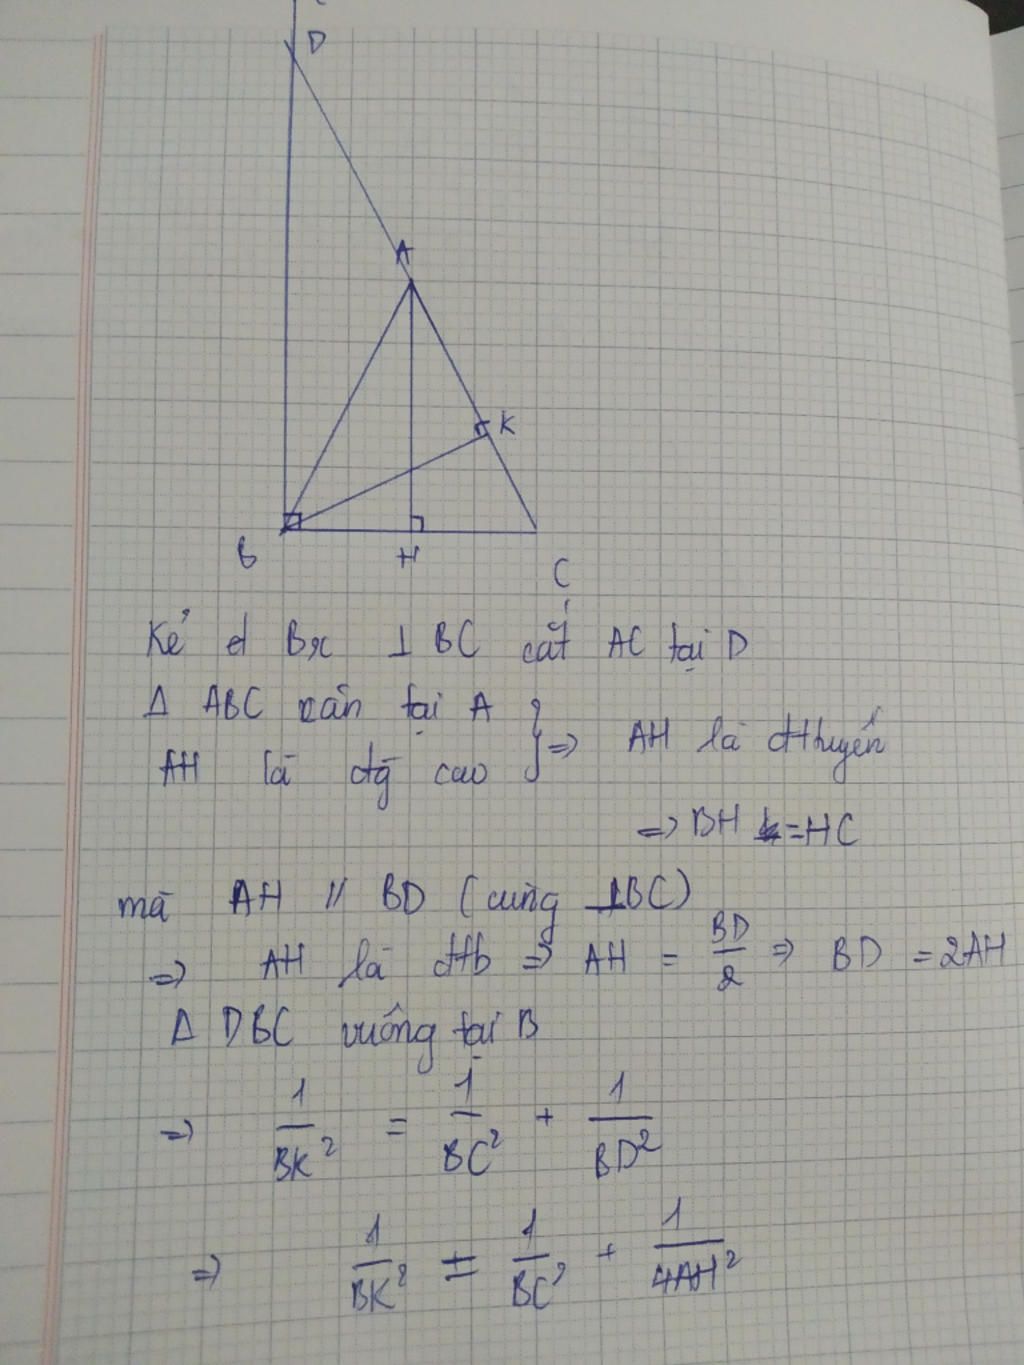 D
A
K
B
H
C
Kẻ đ Bx ⊥ BC cắt AC tại D
Δ ABC cân tại A
AH là đg cao
} => AH là đ⁠thuyến
=> BH = HC
mà AH // BD (cùng ⊥BC)
=> AH là đtb => AH = BD/2 => BD = 2AH
Δ DBC vuông tại B
=> 1/BK² = 1/BC² + 1/BD²
=> 1/BK² = 1/BC² + 1/4AH²